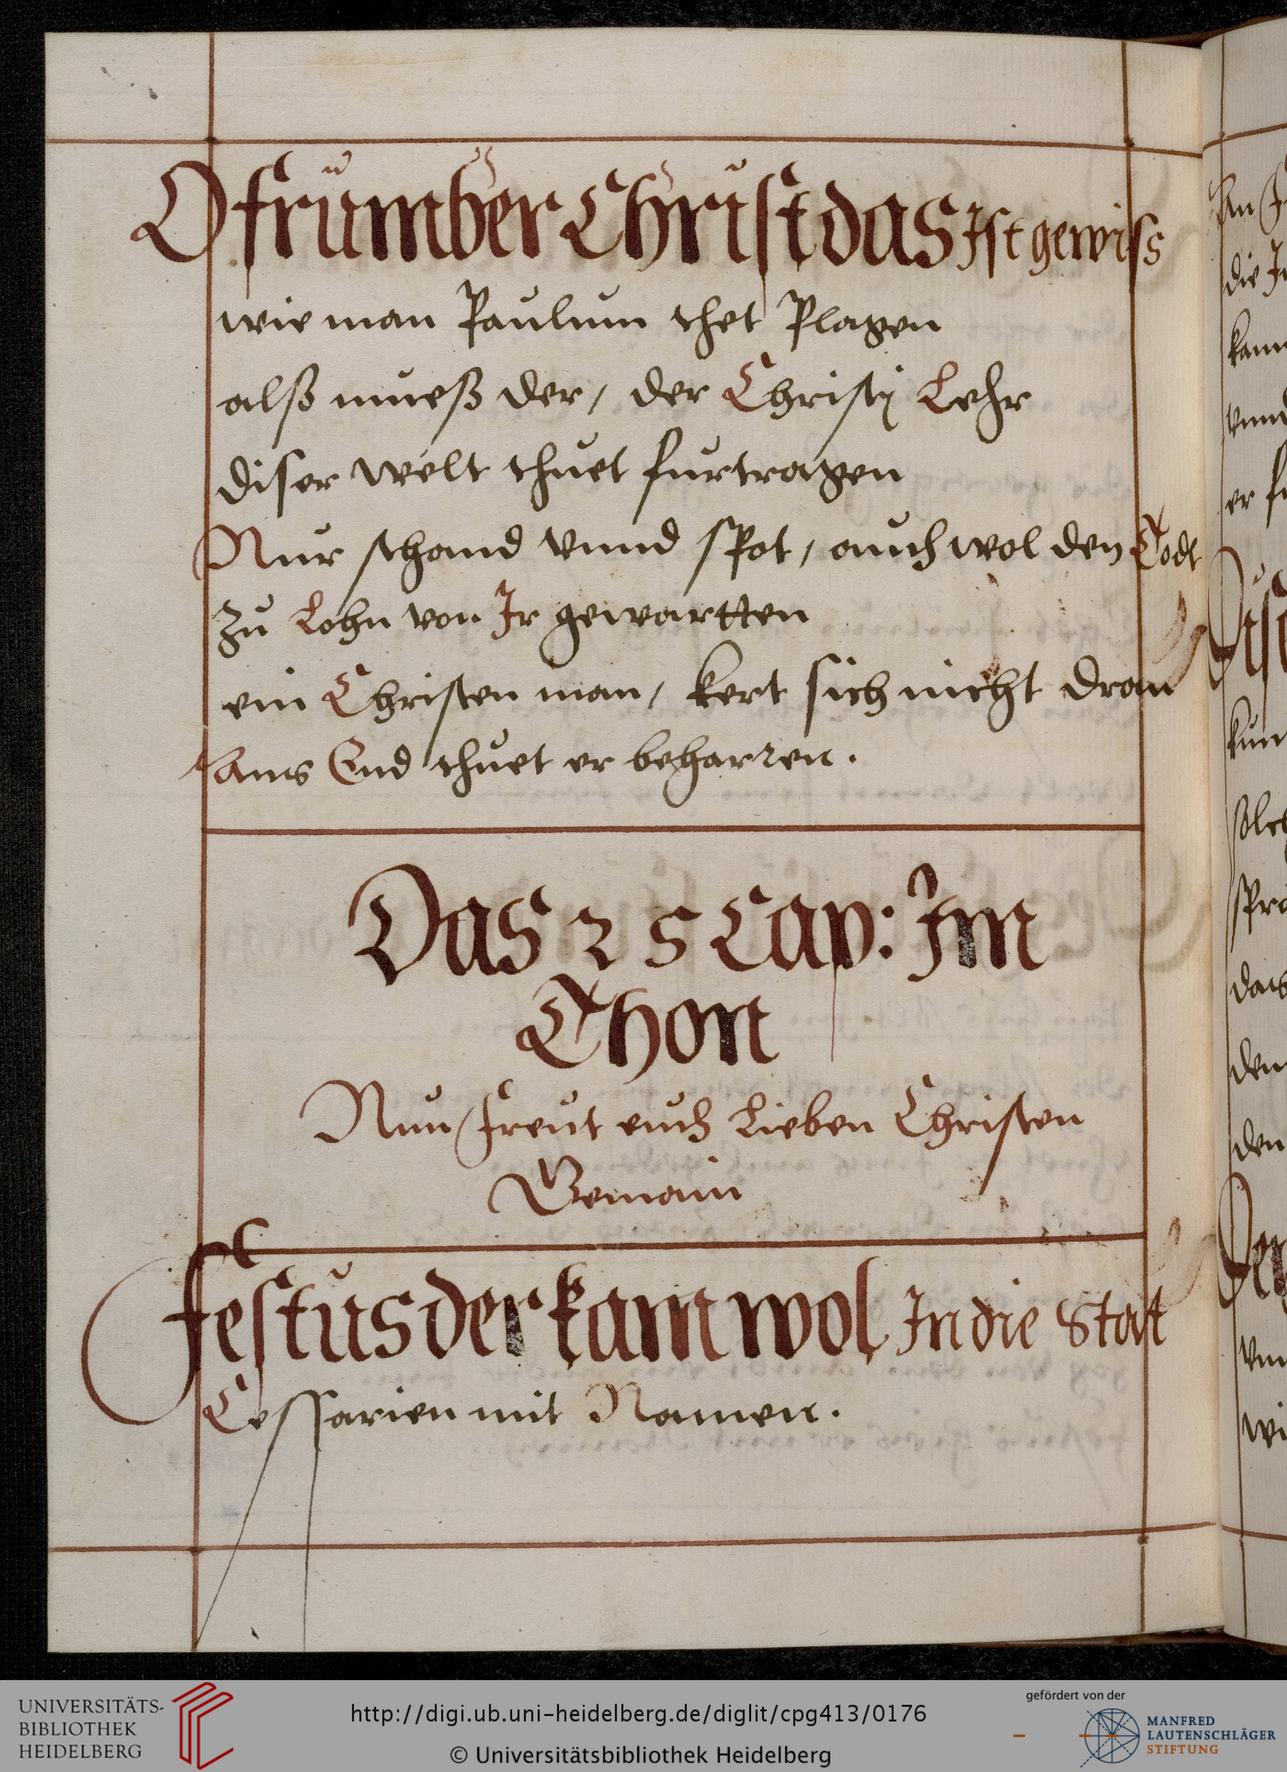 O frümber Christ das Ist gewiss
wie man Paulum thet Plagen
alß mueß der, der Christj Lehr
diser welt thuet furtragen
Nur schand vnnd spot, auch wol den Todt
Zu Lohn von Jr gewartten
ein Christen man, kert sich nicht dran
Ans End thuet er beharren.
Das 25 Cap: Im
Thon
Nun freut euch Lieben Christen
Gemain
Festus der kam wol In die Statt
Cessarien mit Namen.
UNIVERSITÄTS-
BIBLIOTHEK
HEIDELBERG
http://digi.ub.uni-heidelberg.de/diglit/cpg413/0176
© Universitätsbibliothek Heidelberg
gefördert von der
MANFRED
LAUTENSCHLÄGER
STIFTUNG